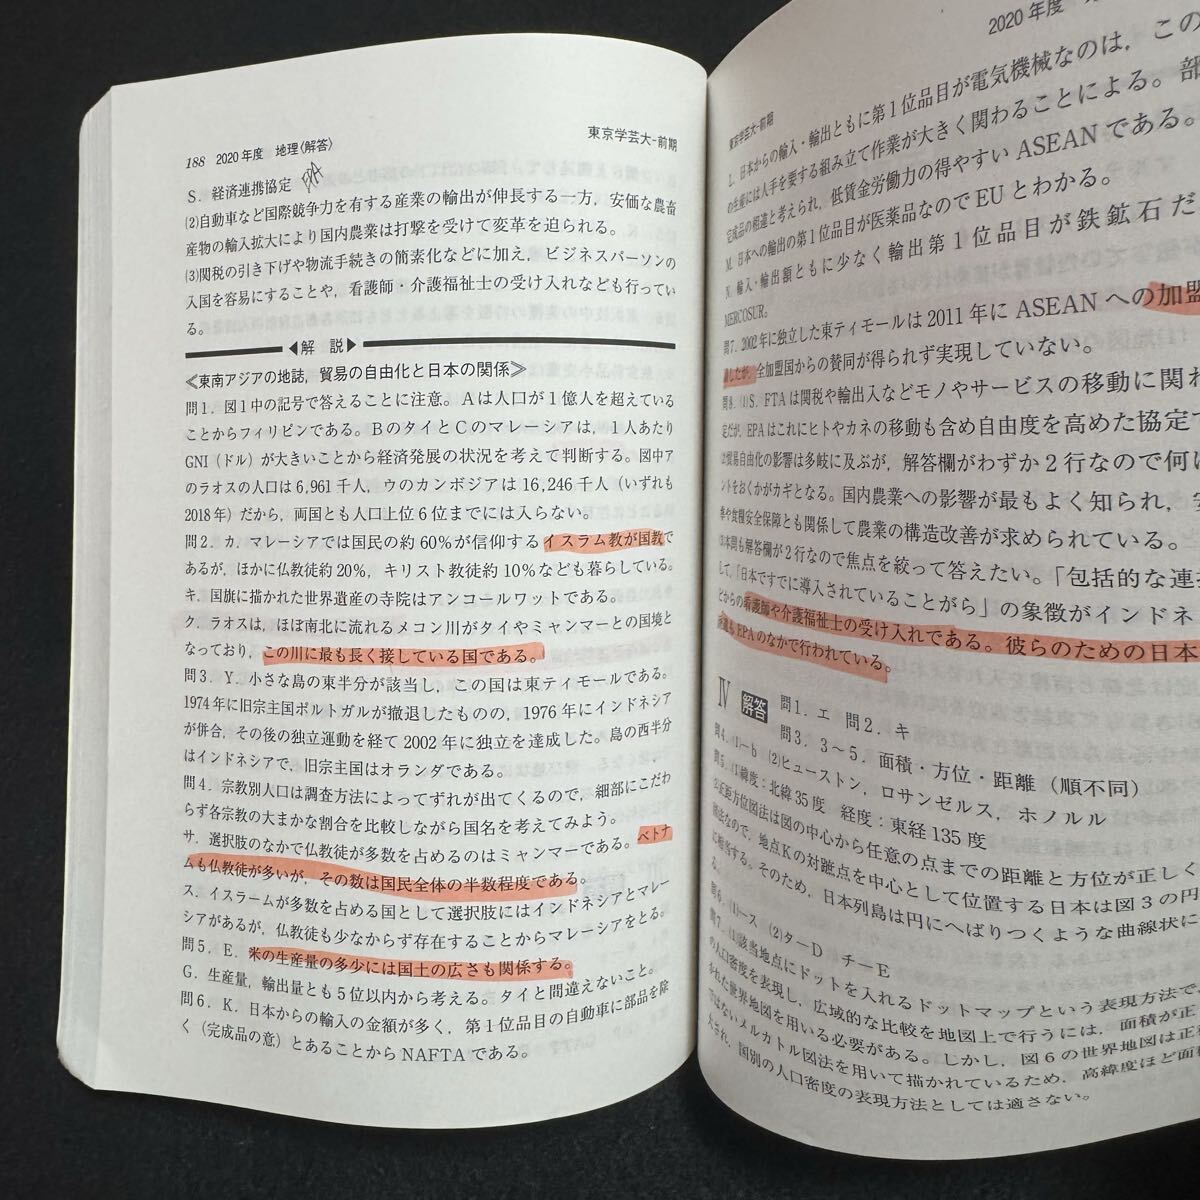 188 2020年度 地理〈解答〉
東京学芸大-前期
S. 経済連携協定
(2)自動車など国際競争力を有する産業の輸出が伸長する一方，安価な農畜
産物の輸入拡大により国内農業は打撃を受けて変革を迫られる。
(3)関税の引き下げや物流手続きの簡素化などに加え，ビジネスパーソンの
入国を容易にすることや，看護師・介護福祉士の受け入れなども行ってい
る。
◀解 説▶
≪東南アジアの地誌，貿易の自由化と日本の関係≫
問1．図1中の記号で答えることに注意。Aは人口が1億人を超えている
ことからフィリピンである。BのタイとCのマレーシアは，1人あたり
GNI（ドル）が大きいことから経済発展の状況を考えて判断する。図中ア
のラオスの人口は6,961千人，ウのカンボジアは16,246千人（いずれも
2018年）だから，両国とも人口上位6位までには入らない。
問2．カ．マレーシアでは国民の約60％が信仰するイスラム教が国教で
あるが，ほかに仏教徒約20％，キリスト教徒約10％なども暮らしている。
キ．国旗に描かれた世界遺産の寺院はアンコールワットである。
ク．ラオスは，ほぼ南北に流れるメコン川がタイやミャンマーとの国境と
なっており，この川に最も長く接している国である。
問3．Y．小さな島の東半分が該当し，この国は東ティモールである。
1974年に旧宗主国ポルトガルが撤退したものの，1976年にインドネシア
が併合，その後の独立運動を経て2002年に独立を達成した。島の西半分
はインドネシアで，旧宗主国はオランダである。
問4．宗教別人口は調査方法によってずれが出てくるので，細部にこだわ
らず各宗教の大まかな割合を比較しながら国名を考えてみよう。
サ．選択肢のなかで仏教徒が多数を占めるのはミャンマーである。ベトナ
ムも仏教徒が多いが，その数は国民全体の半数程度である。
ス．イスラームが多数を占める国として選択肢にはインドネシアとマレー
シアがあるが，仏教徒も少なからず存在することからマレーシアをとる。
問5．E．米の生産量の多少には国土の広さも関係する。
G．生産量，輸出量とも5位以内から考える。タイと間違えないこと。
問6．K．日本からの輸入の金額が多く，第1位品目の自動車に部品を除
く（完成品の意）とあることからNAFTAである。
2020年度
東京学芸大-前期
L．日本からの輸入・輸出ともに第1位品目が電気機械なのは，この
の生産には人手を要する組み立て作業が大きく関わることによる。部
完成品の相違と考えられ，低賃金労働力の得やすいASEANである。
M．日本への輸出の第1位品目が医薬品なのでEUとわかる。
N．輸入・輸出額ともに少なく輸出第1位品目が鉄鉱石だ
MERCOSUR。
問7．2002年に独立した東ティモールは2011年にASEANへの加盟
したが，全加盟国からの賛同が得られず実現していない。
問8．(1)S．FTAは関税や輸出入などモノやサービスの移動に関
定だが，EPAはこれにヒトやカネの移動も含め自由度を高めた協定
貿易自由化の影響は多岐に及ぶが，解答欄がわずか2行なので何
ントをおくかがカギとなる。国内農業への影響が最もよく知られ，
や食糧安全保障とも関係して農業の構造改善が求められている。
本問も解答欄が2行なので焦点を絞って答えたい。「包括的な連
して，「日本ですでに導入されていることがら」の象徴がインドネ
どからの看護師や介護福祉士の受け入れである。彼らのための日本
もEPAのなかで行われている。
Ⅳ 解答 問1．エ 問2．キ
問3．3～5．面積・方位・距離（順不同）
問4．(1)－b (2)ヒューストン，ロサンゼルス，ホノルル
問5．(1)緯度：北緯35度 経度：東経135度
(2)正距方位図法は図の中心から任意の点までの距離と方位が正しく
図法なので，地点Kの対蹠点を中心として位置する日本は図3の円
に相当する。そのため，日本列島は円にへばりつくような曲線状に
る。
問6．(1)－ス (2)ターD チーE
問7．(1)該当地点にドットを入れるドットマップという表現方法で，
の人口密度を表現し，広域的な比較を地図上で行うには，面積が正
かれた世界地図を用いる必要がある。しかし，図6の世界地図は正
ではないメルカトル図法を用いて描かれているため，高緯度ほど面
大され，国別の人口密度の表現方法としては適さない。